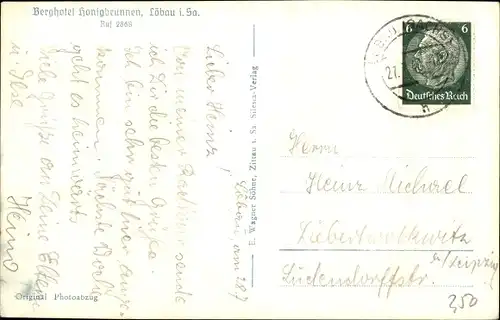 Berghotel Honigbrunnen, Löbau i. Sa.
Ruf 2869
Löbau, am 28.7
Lieber Heinz!
Von meiner Radtour sende
ich Dir die besten Grüße.
Ich bin sehr gut hier ange-
kommen. Nächste Woche
geht es heimwärts.
Viele Grüße an Deine Eltern
u. Ilse
Heino
Original Photoabzug
E. Wagner Söhne, Zittau i. Sa. Silesia-Verlag
6 6
Deutsches Reich
LÖBAU (SACHS)
27.
h
Herrn
Heinz Michael
Liebertwolkwitz
b/Leipzig
Ludendorffstr.
2,50